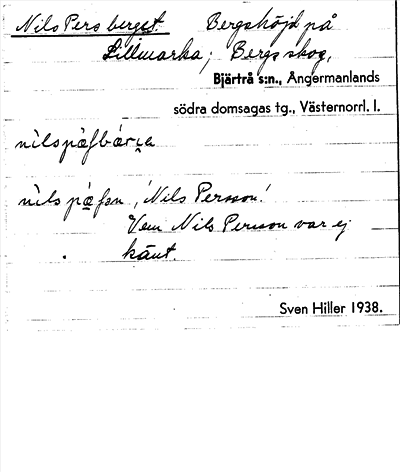 Nils Pers berget. Bergshöjd på
Lillmarka; Bergs skog,
Bjärtrå s:n., Ångermanlands
södra domsagas tg., Västernorrl. l.
'Nils Persson'.
Vem Nils Persson var ej
känt.
Sven Hiller 1938.